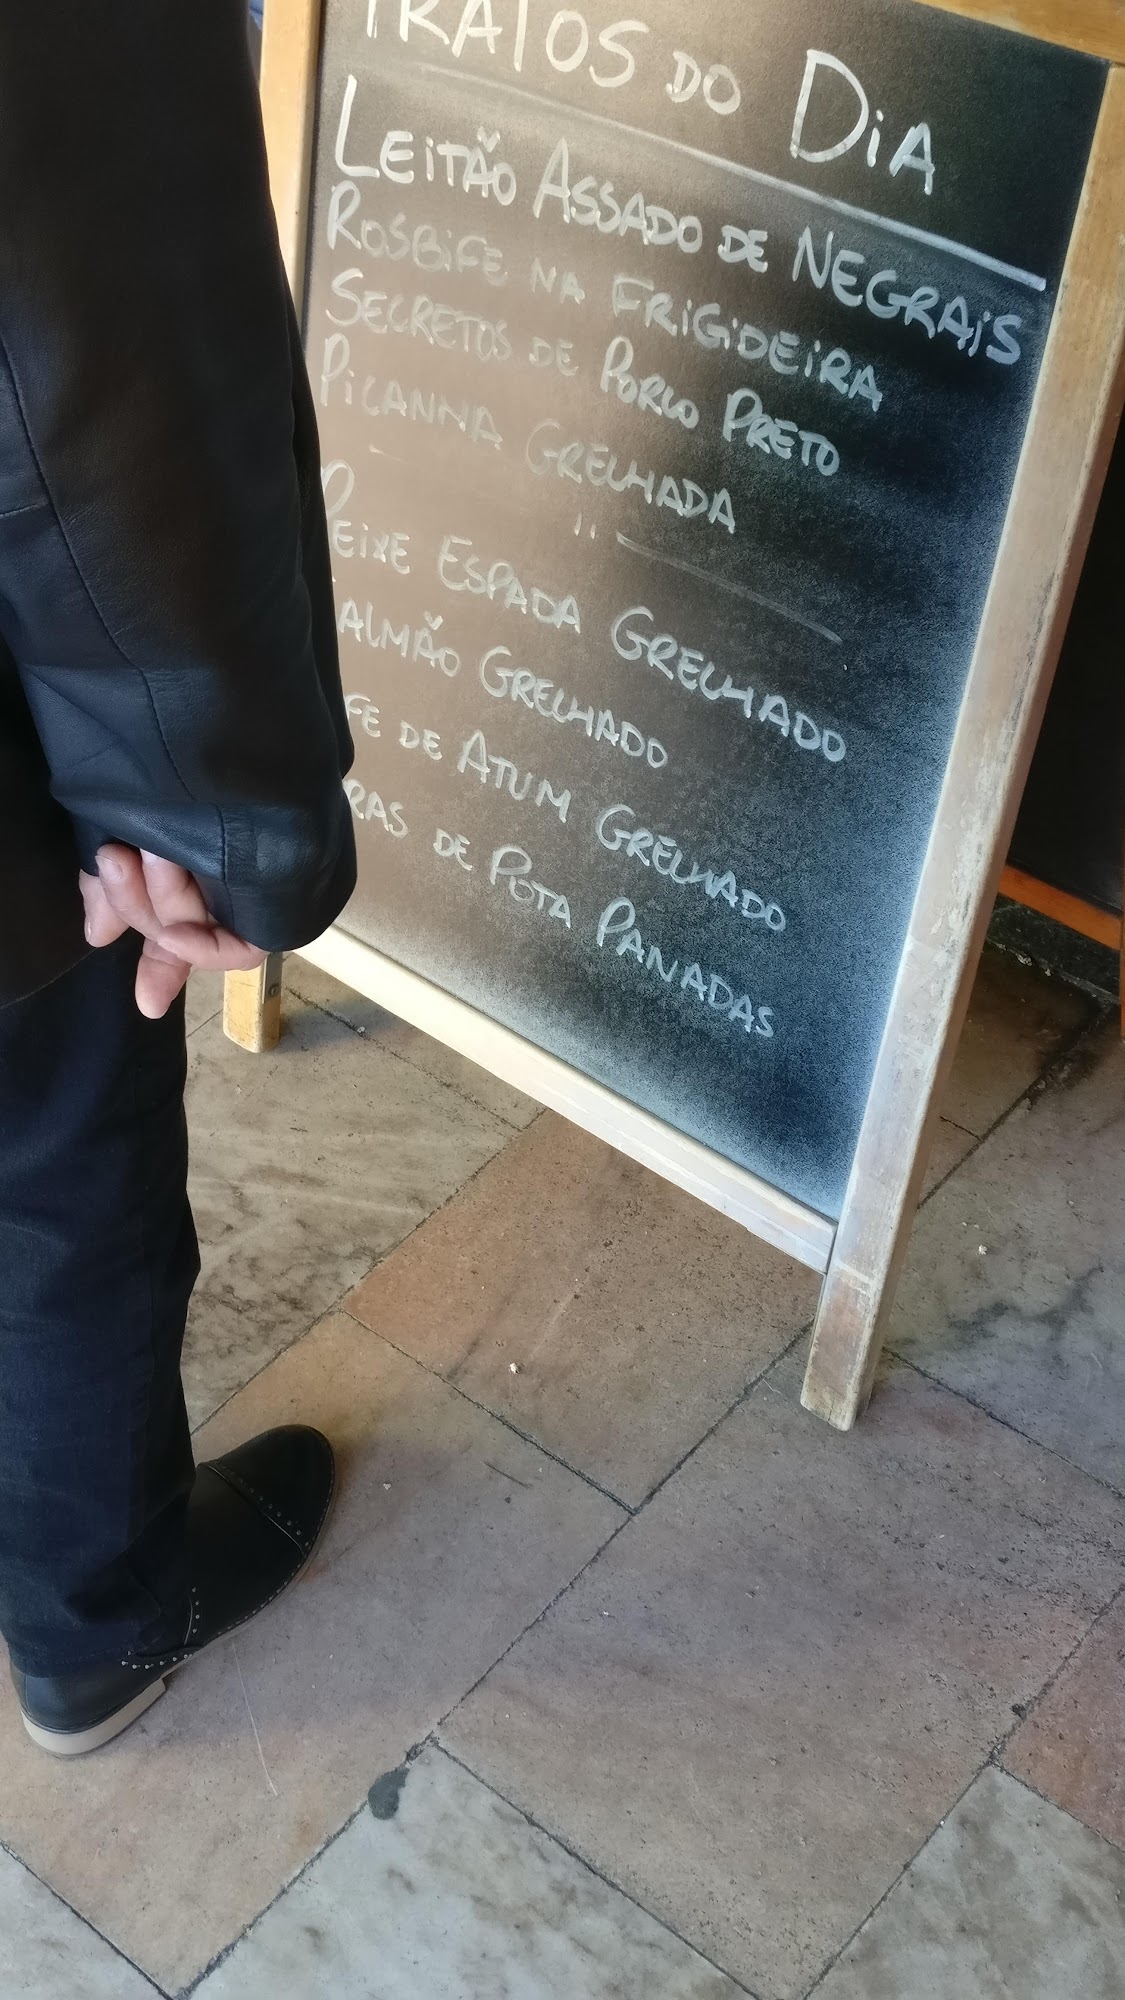 PRATOS DO DIA
LEITÃO ASSADO DE NEGRAIS
ROSBIFE NA FRIGIDEIRA
SECRETOS DE PORCO PRETO
PICANHA GRELHADA
PEIXE ESPADA GRELHADO
SALMÃO GRELHADO
FE DE ATUM GRELHADO
RAS DE POTA PANADAS